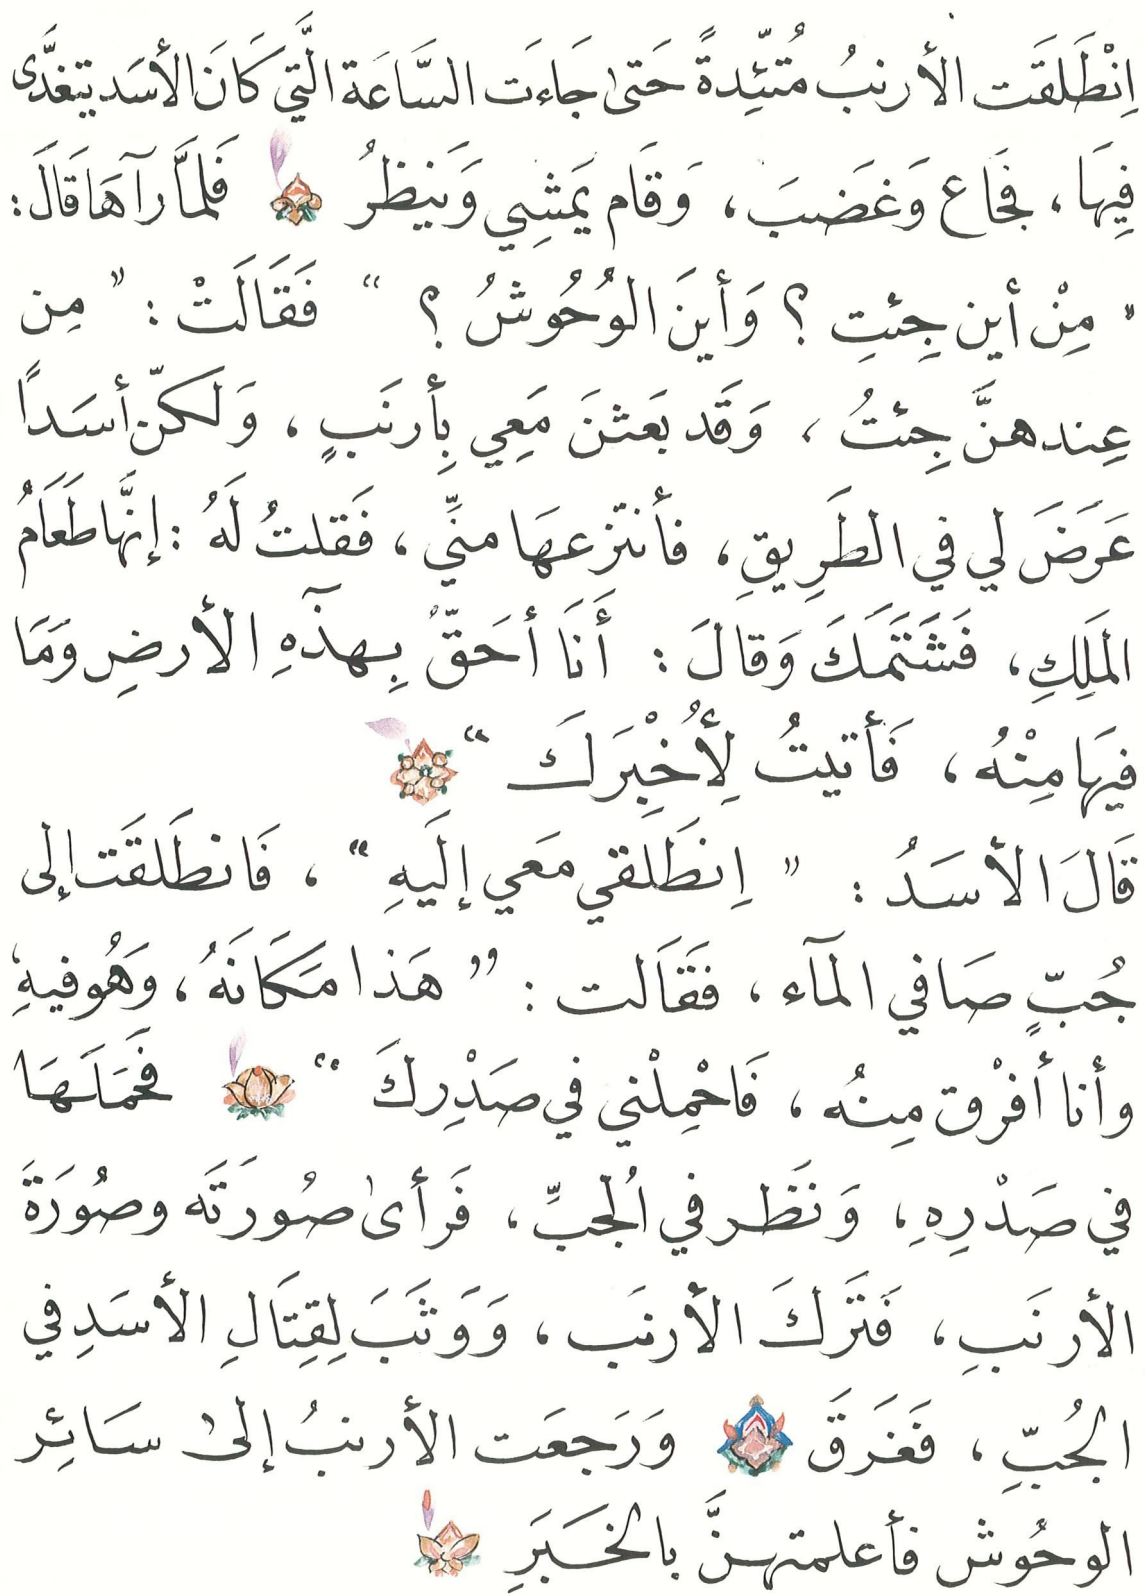 اِنْطَلَقَت الأرنبُ مُتئِّدةً حَتىٰ جَاءَت السَّاعَة الَّتي كَانَ الأسَد يتغدَّى
فِيهَا ، فجَاع وَغَضبَ ، وَقام يَمشِي وَينظرُ فَلمَّا رآهَا قَالَ :
" مِنْ أين جِئتِ ؟ وَأينَ الوُحُوشُ ؟ " فَقَالَتْ : " مِن
عِند هنَّ جِئتُ ، وَقَد بَعَثنَ مَعِي بِأرنَبٍ ، وَلكنّ أسَداً
عَرَضَ لي في الطَرِيقِ ، فأنتزعهَا منِّي ، فَقلتُ لَهُ : إنَّهَا طَعَامُ
المَلِكِ ، فَشَتَمَكَ وَقالَ : أَنَا أحَقّ بِهذهِ الأرضِ وَمَا
فيهَا مِنْهُ ، فَأتيتُ لِأُخْبِرَكَ "
قَالَ الأسَدُ : " اِنطَلقي مَعي إلَيهِ " ، فَانطَلَقَت إلى
جُبٍّ صَافي المَآء ، فقَالت : " هَذا مَكَانَهُ ، وَهُو فيهِ
وأنا أفرْق مِنهُ ، فَاحْمِلْني في صَدْرِكَ " فحَمَلَهَا
في صَدْرِهِ ، وَنَظَر في الجُبِّ ، فَرأىٰ صُورَتَه وصُورَةَ
الأرنَبِ ، فَتَرَكَ الأرنَب ، وَوَثَبَ لِقِتَالِ الأسَدِ في
الجُبِّ ، فَغَرَقَ وَرَجعَت الأرنبُ إلىٰ سَائِر
الوحُوش فأعلمتهنَّ بالخَبَرِ